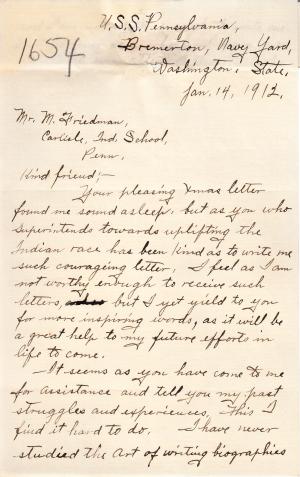 U.S.S. Pennsylvania,
Bremerton, Navy Yard,
1654
Washington, State,
Jan. 14, 1912,
Mr. M. Friedman,
Carlisle, Ind. School,
Penn,
Kind friend;-
Your pleasing Xmas letter
found me sound asleep, but as you who
superintends towards uplifting the
Indian race has been kind as to write me
such couraging letter, I feel as I am
not worthy enough to receive such
letters, but I yet yield to you
for more inspiring words, as it will be
a great help to my future efforts in
life to come.
-It seems as you have come to me
for assistance and tell you my past
struggles and experiences, This I
find it hard to do. I have never
studied the Art of writing biographies